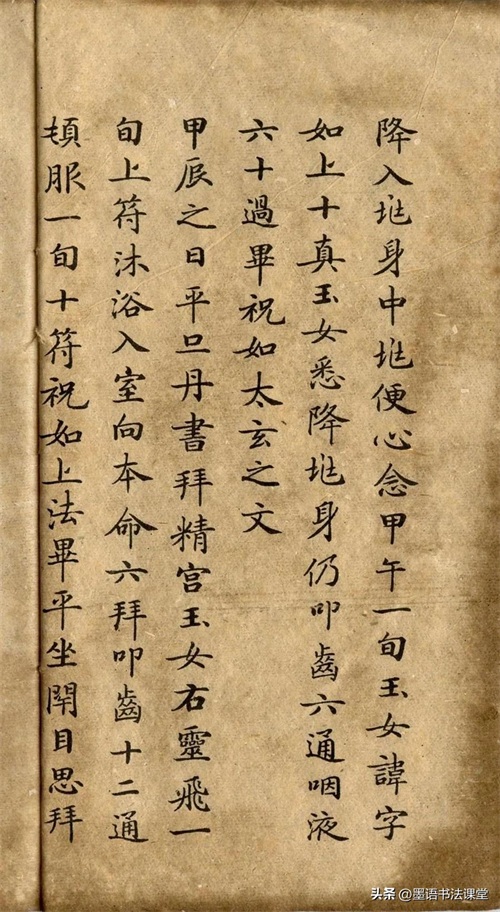 降入𡉵身中𡉵便心念甲午一旬玉女諱字
如上十真玉女悉降𡉵身仍叩齒六通咽液
六十過畢祝如太玄之文
甲辰之日平旦丹書拜精宮玉女右靈飛一
旬上符沐浴入室向本命六拜叩齒十二通
頓服一旬十符祝如上法畢平坐閇目思拜
头条@墨语书法课堂